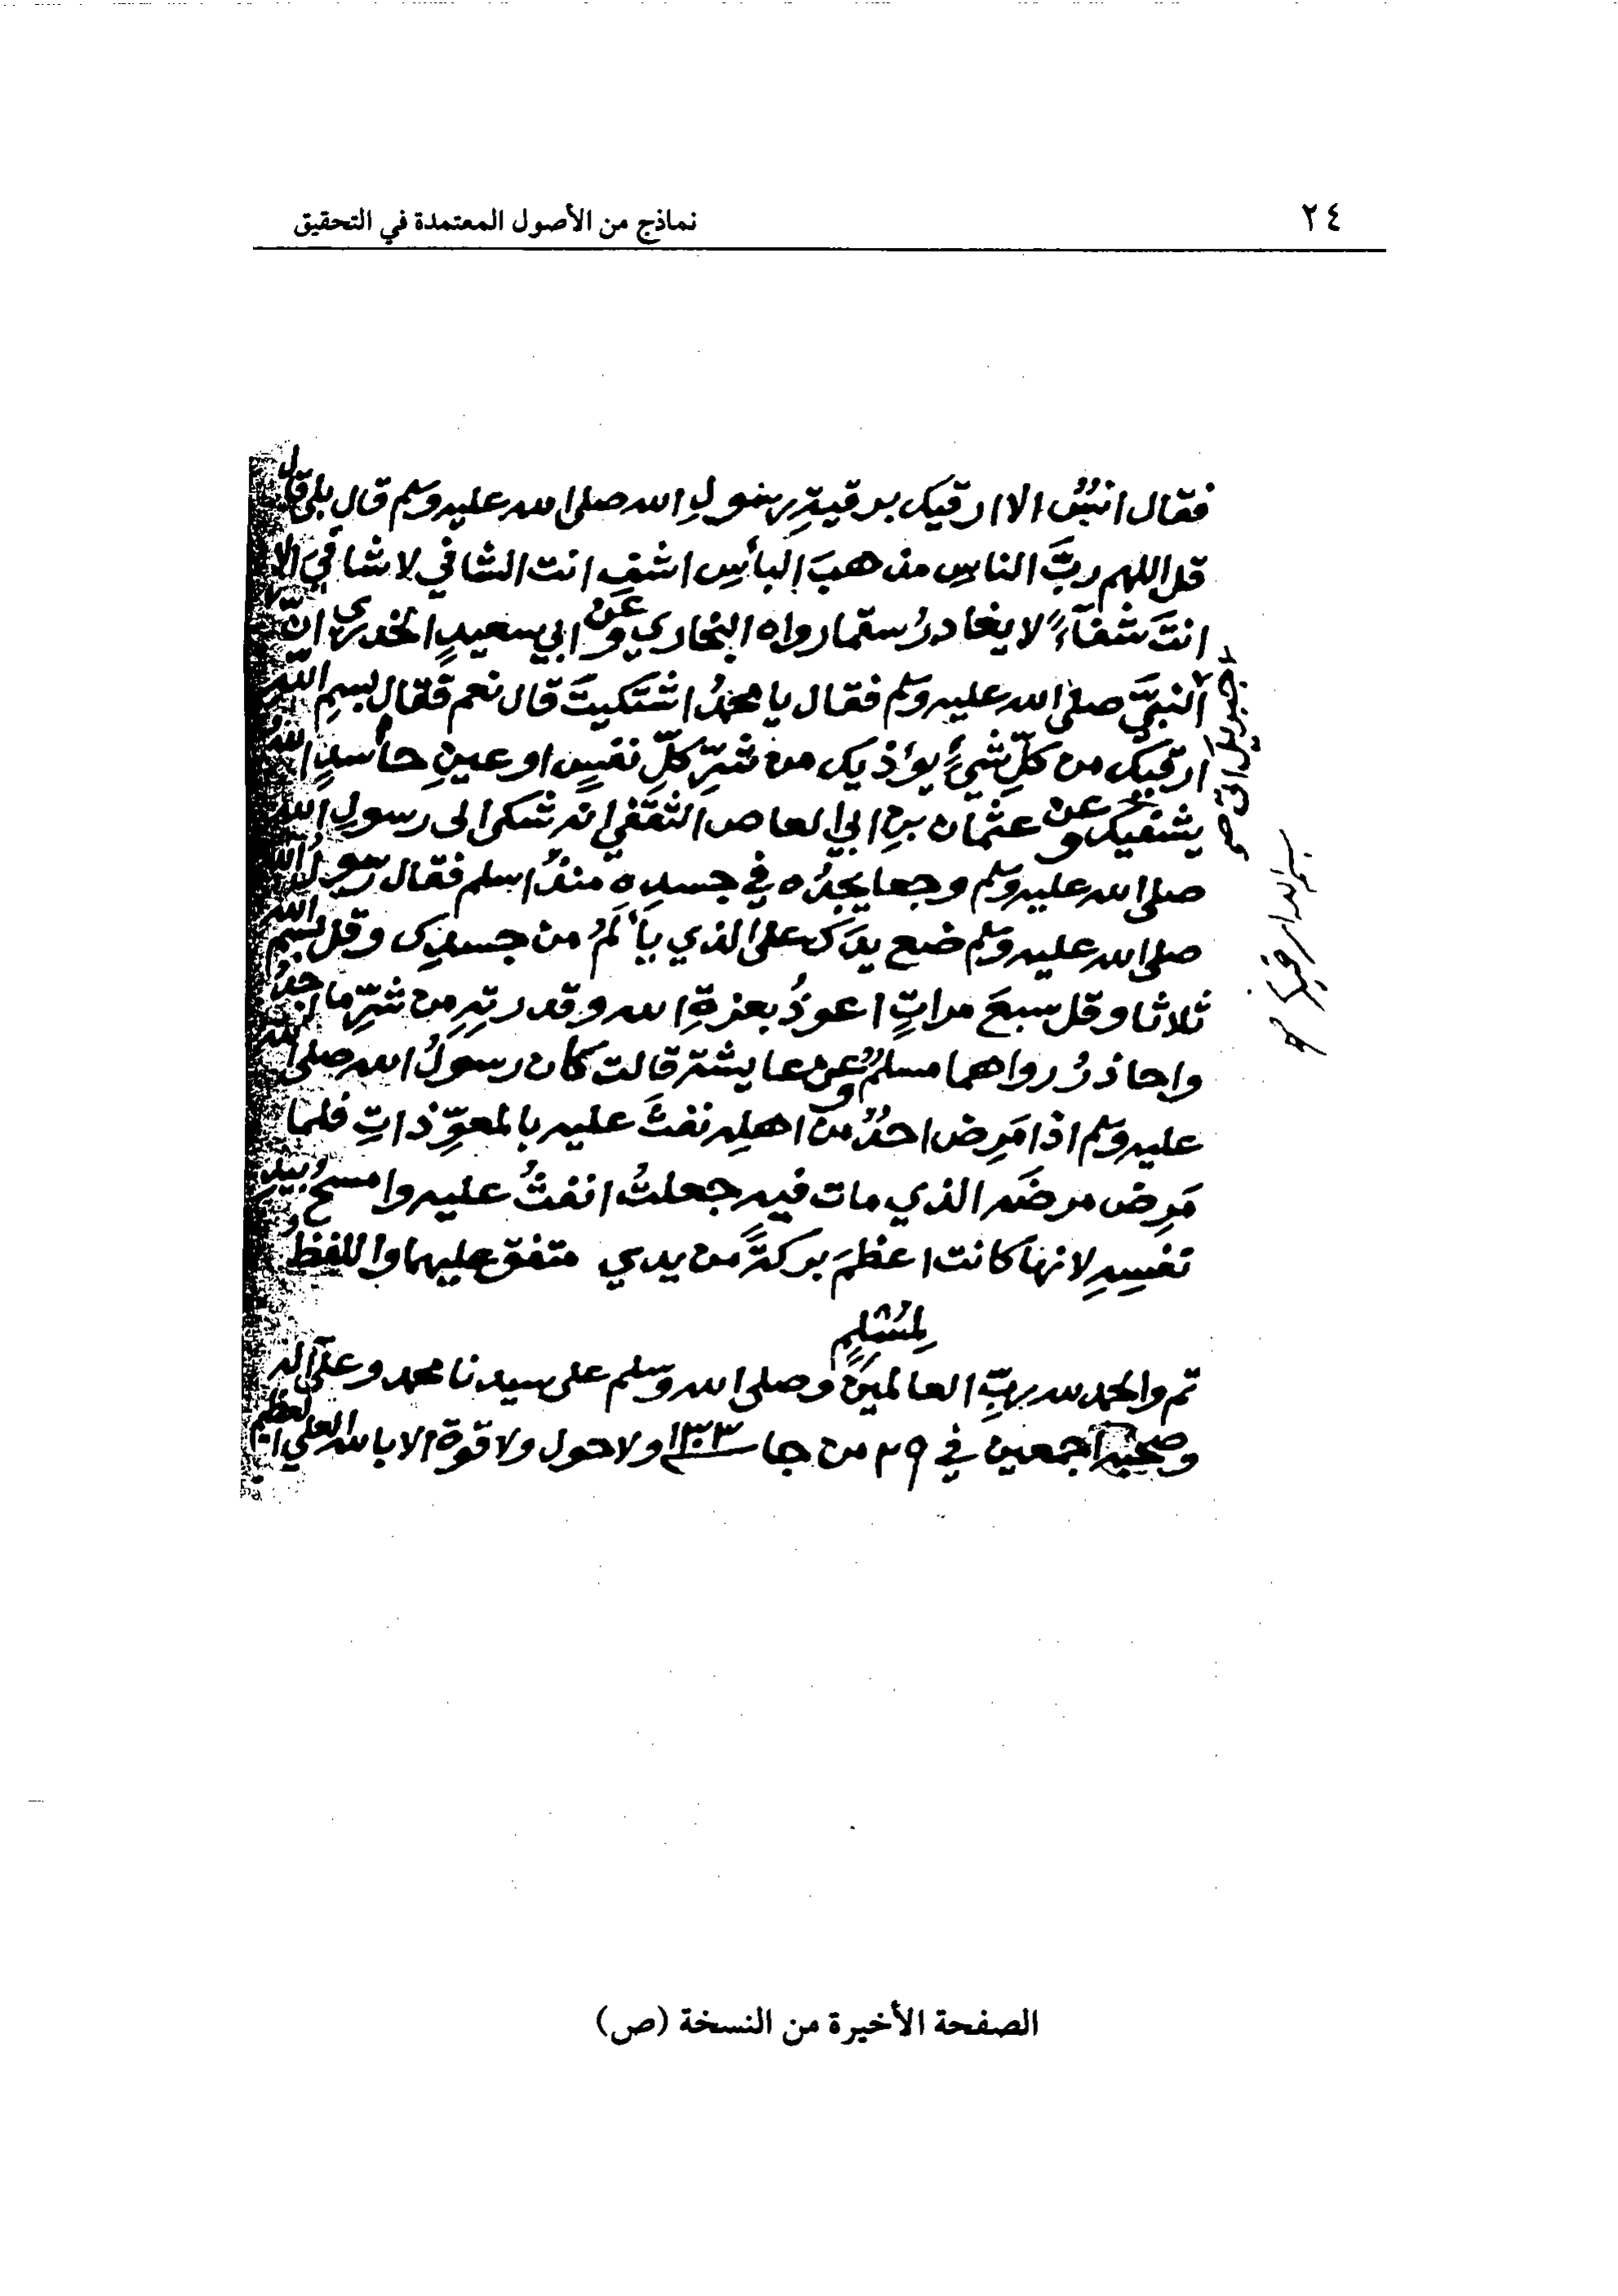 ٢٤
نماذج من الأصول المعتمدة في التحقيق
فقال انسٌ الا ارقيك برقيةِ رسولِ الله صلى الله عليه وسلم قال بلى قال
قل اللهم ربَّ الناسِ مذهبَ البأسِ اشفِ انت الشافي لا شافيَ الا
انتَ شفآءً لا يغادرُ سقما رواه البخاري وعن ابي سعيدٍ الخدري انّ
جبريل اتى صح
النبيَّ صلى الله عليه وسلم فقال يا محمدُ اشتكيتَ قال نعم فقال بسمِ الله
ارقيك من كلِّ شيءٍ يؤذيك من شرِّ كلِّ نفسٍ او عينِ حاسدٍ اللهُ
يشفيك وعن عثمان بنِ ابي العاص الثقفي انه شكى الى رسولِ الله
بسم الله ارقيك صح
صلى الله عليه وسلم وجعا يجدُه في جسدِهِ منذُ اسلم فقال رسولُ الله
صلى الله عليه وسلم ضع يدَك على الذي يأْلَمُ من جسدِك وقل بسم الله
ثلاثا وقل سبعَ مراتٍ اعوذُ بعزةِ الله وقدرتِهِ من شرِّ ما اجدُ
واحاذرُ رواهما مسلمٌ وعن عايشة قالت كان رسولُ الله صلى الله
عليه وسلم اذا مَرِض احدٌ من اهلِه نفثَ عليه بالمعوِّذاتِ فلما
مَرِض مرضَه الذي مات فيه جعلتُ انفثُ عليه وامسحُ بيدِ
نفسِهِ لانها كانت اعظمَ بركةً من يدي متفق عليهما واللفظُ
لمُسْلِمٍ
تم والحمد لله ربِّ العالمين وصلى الله وسلم على سيدنا محمد وعلى آله
وصحبه اجمعين في ٢٩ من جا سنة ١٣٠٣ ولا حول ولا قوة الا بالله العلي العظيم
الصفحة الأخيرة من النسخة (ص)